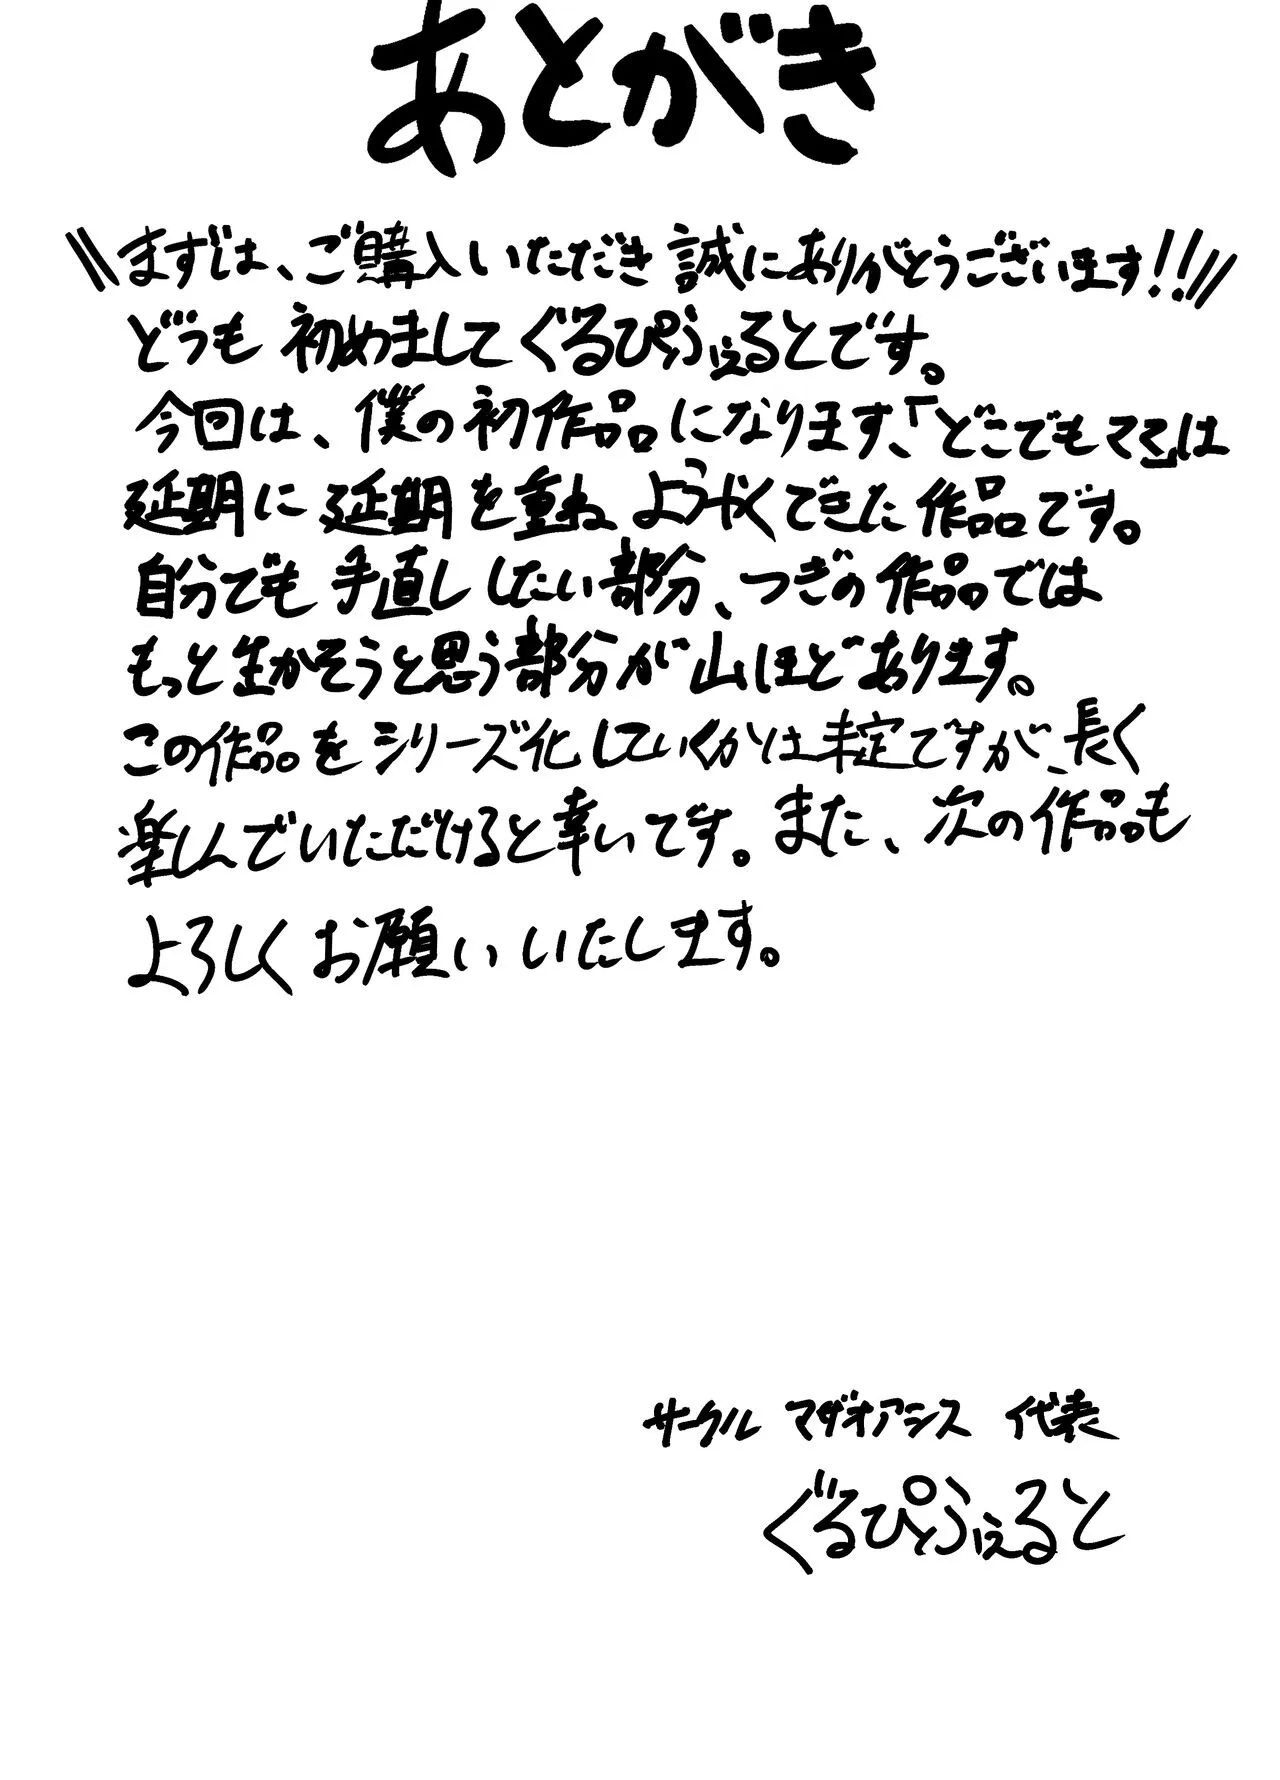 あとがき
\\まずは、ご購入いただき誠にありがとうございます!!//
どうも 初めまして ぐるぴふぇるとです。
今回は、僕の初作品になります、「どこでもママ」は
延期に延期を重ね ようやくできた作品です。
自分でも手直ししたい部分、つぎの作品では
もっと生かそうと思う部分が山ほどあります。
この作品をシリーズ化していくかは未定ですが、長く
楽しんでいただけると幸いです。また、次の作品も
よろしくお願いいたします。
サークル マザオアシス 代表
ぐるぴとふぇると